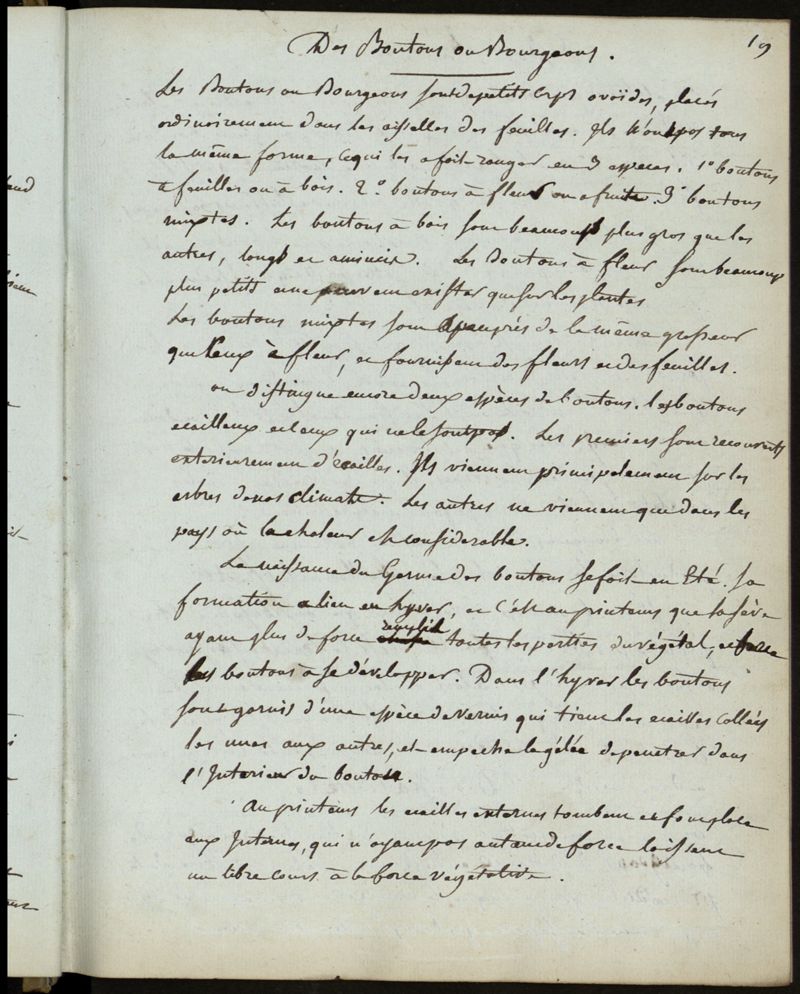 19
Des Boutons ou Bourgeons.
Les Boutons ou Bourgeons sont de petits corps ovoïdes, placés
ordinairement dans les aisselles des feuilles. Ils n'ont pas tous
la même forme, ce qui les a fait ranger en 3 especes. 1° boutons
à feuilles ou à bois. 2° boutons à fleur ou a fruits. 3° boutons
mixtes. Les boutons à bois sont beaucoup plus gros que les
autres, longs et amincis. Les Boutons à fleur sont beaucoup
plus petits et ne peuvent exister que sur les plantes
Les boutons mixtes sont apeuprès de la même grosseur
que ceux à fleur, et fournissent des fleurs et des feuilles.
on distingue encore deux espèces de boutons. les boutons
ecailleux et ceux qui ne le sont pas. Les premiers sont recouverts
exterieurement d'écailles. Ils viennent principalement sur les
arbres de nos climats. Les autres ne viennent que dans les
pays où la chaleur est considerable.
La naissance du Germe des boutons se fait en Eté. Sa
formation a lieu en hyver, et c'est au printems que la sève
ayant plus de force remplit toutes les parties du végétal, et force
les boutons a se développer. Dans l'hyver les boutons
sont garnis d'une espèce de vernis qui tient les ecailles collées
les unes aux autres, et empeche la gélée de penetrer dans
l'Interieur du bouton.
Au printems les ecailles externes tombent et font place
aux Internes, qui n'ayant pas autant de force laissent
un libre cours à la force végétative.